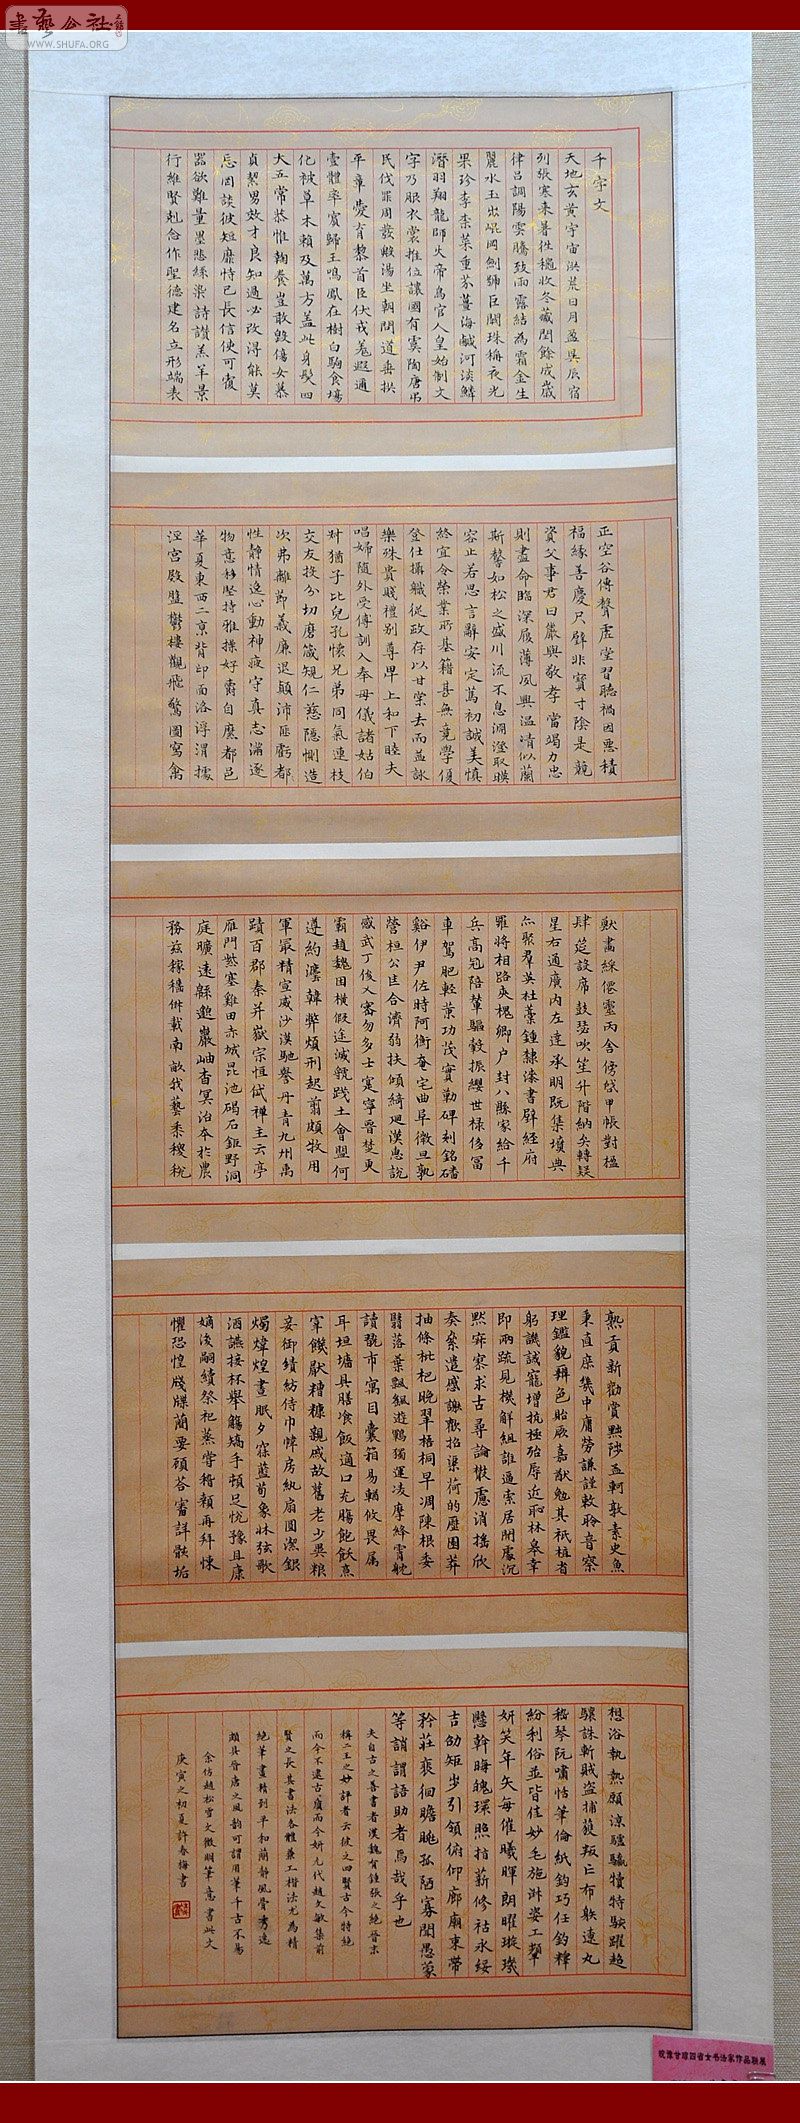 書藝公社
WWW.SHUFA.ORG
千字文
天地玄黃宇宙洪荒日月盈昃辰宿
列張寒來暑往穐收冬藏閏餘成歲
律呂調陽雲騰致雨露結為霜金生
麗水玉出崐岡劍號巨闕珠稱夜光
果珍李柰菜重芥薑海鹹河淡鱗
潛羽翔龍師火帝鳥官人皇始制文
字乃服衣裳推位讓國有虞陶唐弔
民伐罪周發殷湯坐朝問道垂拱
平章愛育黎首臣伏戎羌遐邇
壹體率賓歸王鳴鳳在樹白駒食場
化被草木賴及萬方盖此身髮四
大五常恭惟鞠養豈敢毀傷女慕
貞絜男效才良知過必改得能莫
忘罔談彼短靡恃己長信使可覆
器欲難量墨悲絲染詩讚羔羊景
行維賢剋念作聖德建名立形端表
正空谷傳聲虛堂習聽禍因惡積
福緣善慶尺璧非寶寸陰是競
資父事君曰嚴與敬孝當竭力忠
則盡命臨深履薄夙興温凊似蘭
斯馨如松之盛川流不息淵澄取暎
容止若思言辭安定篤初誠美慎
終宜令榮業所基籍甚無竟學優
登仕攝職從政存以甘棠去而益詠
樂殊貴賤禮別尊卑上和下睦夫
唱婦随外受傅訓入奉母儀諸姑伯
叔猶子比兒孔懷兄弟同氣連枝
交友投分切磨箴規仁慈隱惻造
次弗離節義廉退顛沛匪虧都
性靜情逸心動神疲守真志滿逐
物意移堅持雅操好爵自縻都邑
華夏東西二京背邙面洛浮渭據
涇宮殿盤鬱樓觀飛驚圖寫禽
獸畫綵僊靈丙舍傍啟甲帳對楹
肆筵設席鼓瑟吹笙升階納陛弁轉疑
星右通廣內左達承明既集墳典
亦聚群英杜藁鍾隸漆書壁經府
羅將相路夾槐卿户封八縣家給千
兵高冠陪輦驅轂振纓世禄侈富
車駕肥輕策功茂實勒碑刻銘磻
谿伊尹佐時阿衡奄宅曲阜微旦孰
營桓公匡合濟弱扶傾綺迴漢惠說
感武丁俊乂密勿多士寔寧晉楚更
霸趙魏困橫假途滅虢踐土會盟何
遵約灋韓弊煩刑起翦頗牧用
軍最精宣威沙漠馳譽丹青九州禹
蹟百郡秦并嶽宗恒岱禪主云亭
雁門紫塞雞田赤城昆池碣石鉅野洞
庭曠遠緜邈巖岫杳冥治本於農
務兹稼穡俶載南畝我藝黍稷稅
熟貢新勸賞黜陟孟軻敦素史魚
秉直庶幾中庸勞謙謹敕聆音察
理鑑貌辨色貽厥嘉猷勉其祇植省
躬譏誡寵增抗極殆辱近恥林皋幸
即兩疏見機解組誰逼索居閒處沉
默寂寥求古尋論散慮逍搖欣
奏累遣慼謝歡招渠荷的歷園莽
抽條枇杷晚翠梧桐早凋陳根委
翳落葉飄颻遊鵾獨運凌摩絳霄耽
讀翫市寓目囊箱易輶攸畏屬
耳垣墻具膳飡飯適口充腸飽飫烹
宰饑厭糟糠親戚故舊老少異粮
妾御績紡侍巾帷房紈扇圓潔銀
燭煒煌晝眠夕寐藍荀象牀弦歌
酒讌接杯舉觴矯手頓足悅豫且康
嫡後嗣續祭祀蒸嘗稽顙再拜悚
懼恐惶牋牒簡要顧荅審詳骸垢
想浴執熱願涼驢騾犢特駭躍超
驤誅斬賊盗捕獲叛亡布射遼丸
嵇琴阮嘯恬筆倫紙鈞巧任釣釋
紛利俗並皆佳妙毛施淑姿工顰
妍笑年矢每催曦暉朗曜璇璣
懸斡晦魄環照指薪修祜永綏
吉劭矩步引領俯仰廊廟束帶
矜莊裴徊瞻眺孤陋寡聞愚蒙
等誚謂語助者焉哉乎也
夫自古之善書者漢魏有鍾張之絶晉末
稱二王之妙評者云彼之四賢古今特絶
而今不逮古質而今妍元代趙文敏集前
賢之長其書法各體兼工楷法尤為精
絶筆畫精到平和簡靜風骨秀逸
頗具晉唐之風韵可謂用筆千古不易
余仿趙松雪文徵明筆意書此文
庚寅之初夏許春梅書
皖豫甘琼四省女书法家作品联展